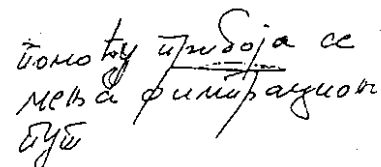 помоћу прибоја се
мења филтрацион
пут